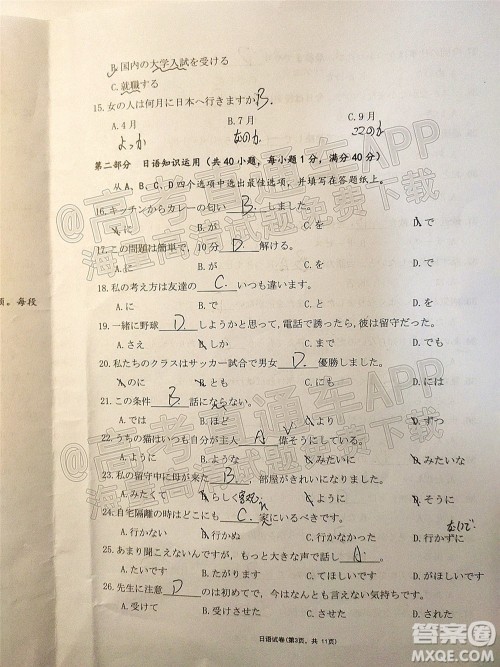 B.国内の大学入試を受ける
C.就職する
15.女の人は何月に日本へ行きますか B.
A.4月 B.7月 C.9月
よっか なのか ここのか
第二部分 日语知识运用（共40小题，每小题1分，满分40分）
从A、B、C、D四个选项中选出最佳选项，并填写在答题纸上。
16.キッチンからカレーの匂い B. しました。
A.に B.が C.を D.で
17.この問題は簡単で、10分 D. 解ける。
A.に B.が C.を D.で
18.私の考え方は友達の C. いつも違います。
A.に B.が C.と D.を
19.一緒に野球 D. しようかと思って、電話で誘ったら、彼は留守だった。
A.さえ B.しか C.まで D.でも
额。每段
20.私たちのクラスはサッカー試合で男女 D. 優勝しました。
A.のに B.とも C.にも D.ともに
21.この条件 B 話にならない。
A.では B.ほど C.より D.ずつ
22.うちの猫はいつも自分が主人 A 偉そうにしている。
A.ように B.ような C.みたいに D.みたいな
23.私の留守中に母が来た B. 、部屋がきれいになりました。
A.みたくて B.らしく C.ように D.そうに
24.自宅隔離の時はどこにも C. 家にいるべきです。
ないで
A.行かない B.行かぬ C.行かなかった D.行かずに
25.あまり聞こえないんですが、もっと大きな声で話し A.
A.たいです B.たがります C.てほしいです D.てほしがります
26.先生に注意 D のは初めてで、今はどう言えばいいか、自分も分かりません。
A.受けて B.受けさせた C.させた D.された
日语试卷(第3页，共11页)
@高考直通车APP
海量高清试题免费下载
@高考直通车APP
海量高清试题免费下载
答案圈
MXQE.COM